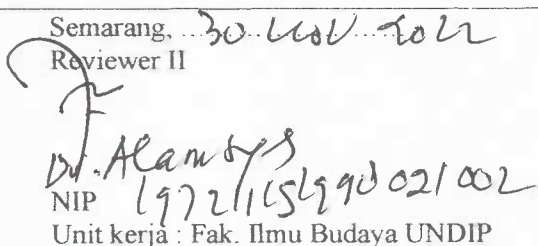 Semarang, ...30 Nov 2022
Reviewer II
Dr. Alamsyah
NIP 197211151998021002
Unit kerja : Fak. Ilmu Budaya UNDIP